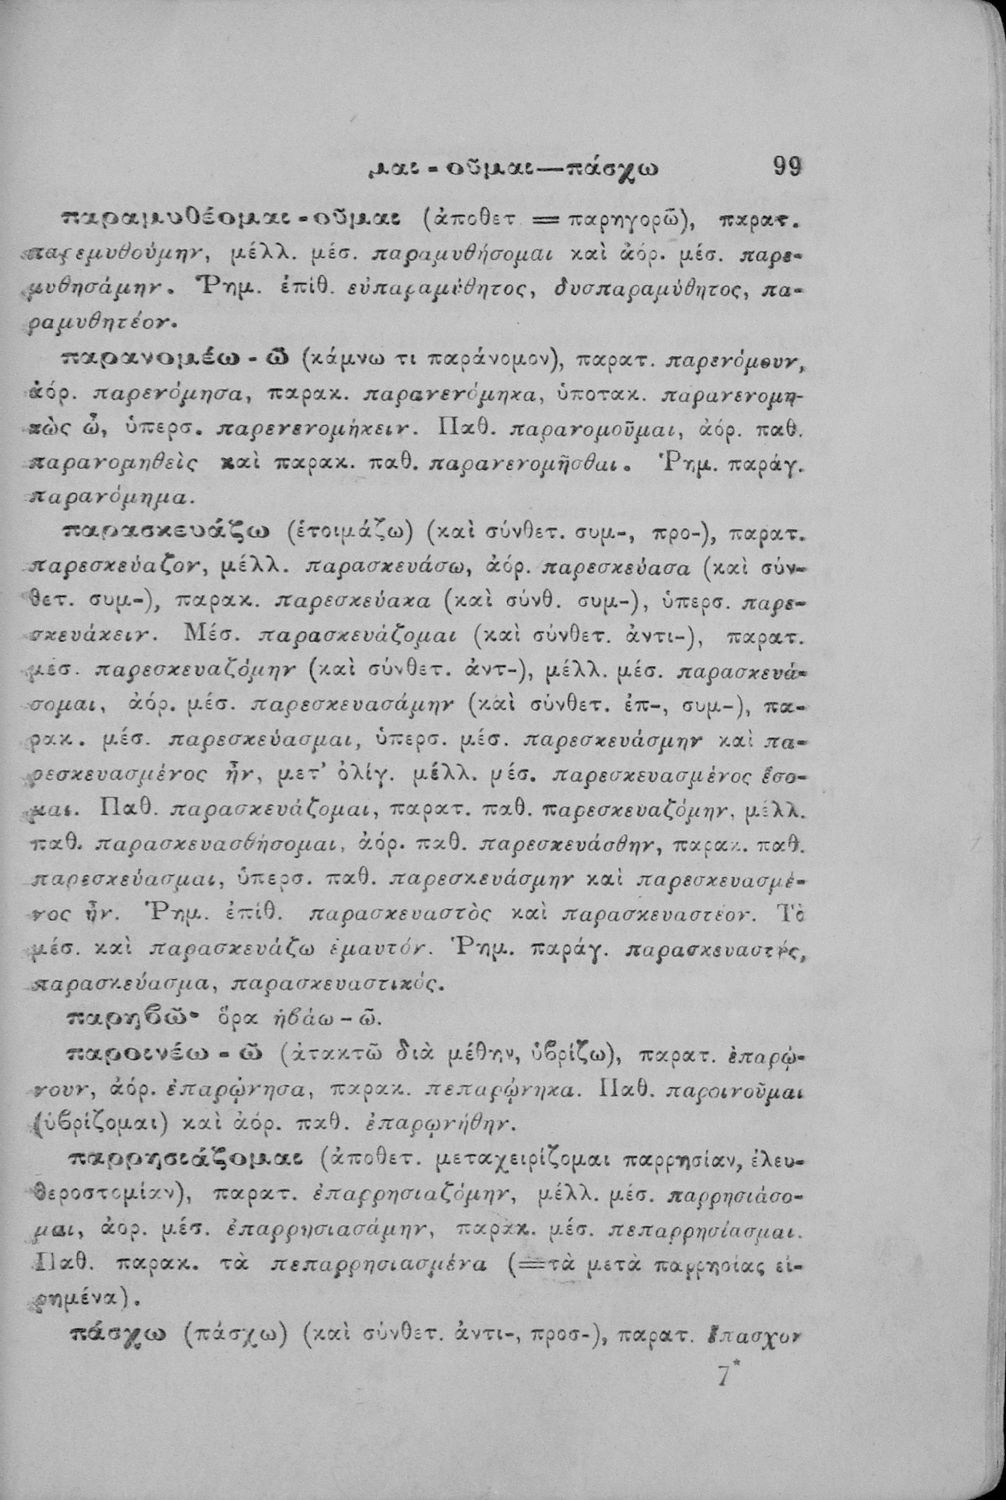 μαι - οῦμαι—πάσχω 99
παραμυθέομαι - οῦμαι (ἀποθετ = παρηγορῶ), παρατ.
παρεμυθούμην, μέλλ. μέσ. παραμυθήσομαι καὶ ἀόρ. μέσ. παρε-
μυθησάμην. Ῥημ. ἐπίθ. εὐπαραμύθητος, δυσπαραμύθητος, πα-
ραμυθητέον.
παρανομέω - ῶ (κάμνω τι παράνομον), παρατ. παρενόμουν,
ἀόρ. παρενόμησα, παρακ. παρανενόμηκα, ὑποτακ. παρανενομη-
κὼς ὦ, ὑπερσ. παρενενομήκειν. Παθ. παρανομοῦμαι, ἀόρ. παθ.
παρανομηθεὶς καὶ παρακ. παθ. παρανενομῆσθαι. Ῥημ. παράγ.
παρανόμημα.
παρασκευάζω (ἑτοιμάζω) (καὶ σύνθετ. συμ-, προ-), παρατ.
παρεσκεύαζον, μέλλ. παρασκευάσω, ἀόρ. παρεσκεύασα (καὶ σύν-
θετ. συμ-), παρακ. παρεσκεύακα (καὶ σύνθ. συμ-), ὑπερσ. παρε-
σκευάκειν. Μέσ. παρασκευάζομαι (καὶ σύνθετ. ἀντι-), παρατ.
μέσ. παρεσκευαζόμην (καὶ σύνθετ. ἀντ-), μέλλ. μέσ. παρασκευά-
σομαι, ἀόρ. μέσ. παρεσκευασάμην (καὶ σύνθετ. ἐπ-, συμ-), πα-
ρακ. μέσ. παρεσκεύασμαι, ὑπερσ. μέσ. παρεσκευάσμην καὶ πα-
ρεσκευασμένος ἦν, μετ' ὀλίγ. μέλλ. μέσ. παρεσκευασμένος ἔσο-
μαι. Παθ. παρασκευάζομαι, παρατ. παθ. παρεσκευαζόμην, μέλλ.
παθ. παρασκευασθήσομαι, ἀόρ. παθ. παρεσκευάσθην, παρακ. παθ.
παρεσκεύασμαι, ὑπερσ. παθ. παρεσκευάσμην καὶ παρεσκευασμέ-
νος ἦν. Ῥημ. ἐπίθ. παρασκευαστὸς καὶ παρασκευαστέον. Τὸ
μέσ. καὶ παρασκευάζω ἐμαυτόν. Ῥημ. παράγ. παρασκευαστής,
παρασκεύασμα, παρασκευαστικός.
παρηβῶ· ὅρα ἡβάω - ῶ.
παροινέω - ῶ (ἀτακτῶ διὰ μέθην, ὑβρίζω), παρατ. ἐπαρῴ-
νουν, ἀόρ. ἐπαρῴνησα, παρακ. πεπαρῴνηκα. Παθ. παροινοῦμαι
(ὑβρίζομαι) καὶ ἀόρ. παθ. ἐπαρῳνήθην.
παρρησιάζομαι (ἀποθετ. μεταχειρίζομαι παρρησίαν, ἐλευ-
θεροστομίαν), παρατ. ἐπαρρησιαζόμην, μέλλ. μέσ. παρρησιάσο-
μαι, ἀορ. μέσ. ἐπαρρησιασάμην, παρακ. μέσ. πεπαρρησίασμαι.
Παθ. παρακ. τὰ πεπαρρησιασμένα (=τὰ μετὰ παρρησίας εἰ-
ρημένα).
πάσχω (πάσχω) (καὶ σύνθετ. ἀντι-, προσ-), παρατ. ἔπασχον
7*